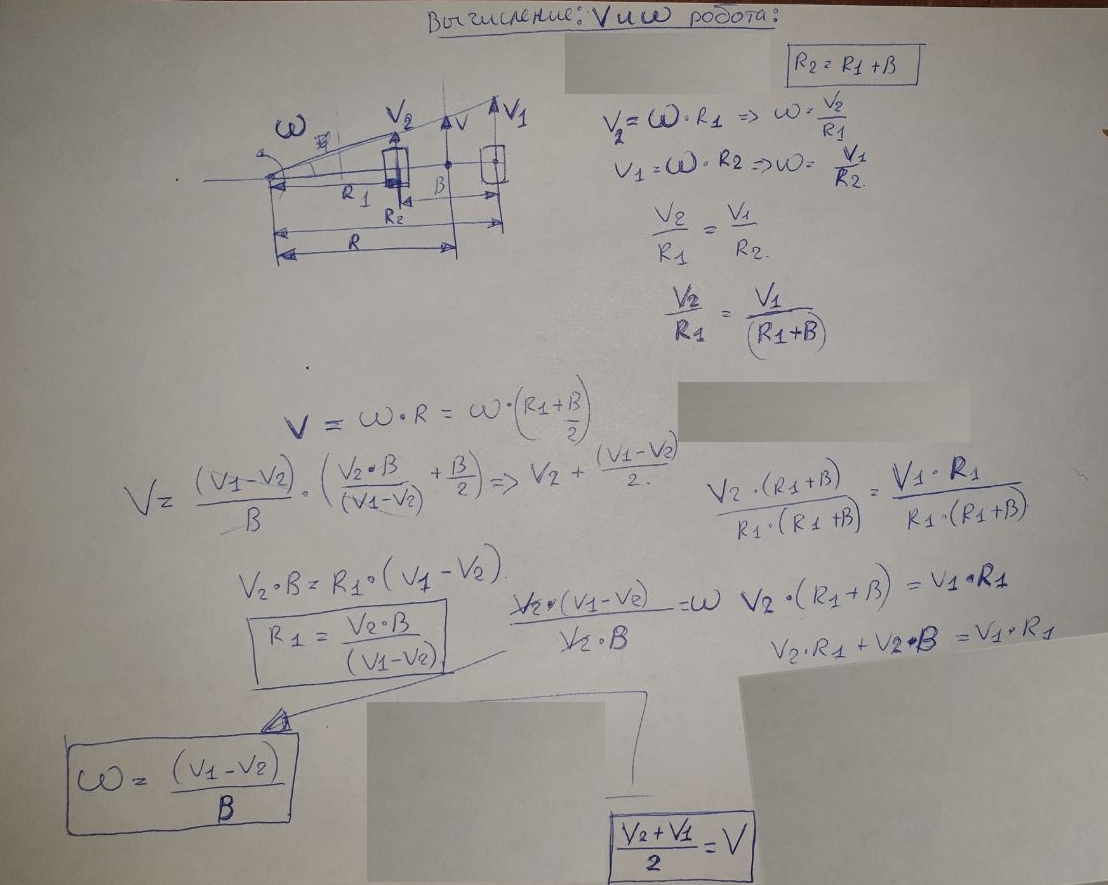 Вычисление: V и ω робота:
R2 = R1 + B
ω V2 V V1
R1 B
R2
R
V2 = ω · R1 => ω = V2/R1
V1 = ω · R2 => ω = V1/R2.
V2/R1 = V1/R2.
V2/R1 = V1/(R1+B)
V = ω · R = ω · (R1 + B/2)
V = (V1-V2)/B · (V2·B/(V1-V2) + B/2) => V2 + (V1-V2)/2.
V2·(R1+B)/R1·(R1+B) = V1·R1/R1·(R1+B)
V2·B = R1·(V1-V2)
R1 = V2·B/(V1-V2)
V2·(V1-V2)/V2·B = ω
V2·(R1+B) = V1·R1
V2·R1 + V2·B = V1·R1
ω = (V1-V2)/B
V2+V1/2 = V